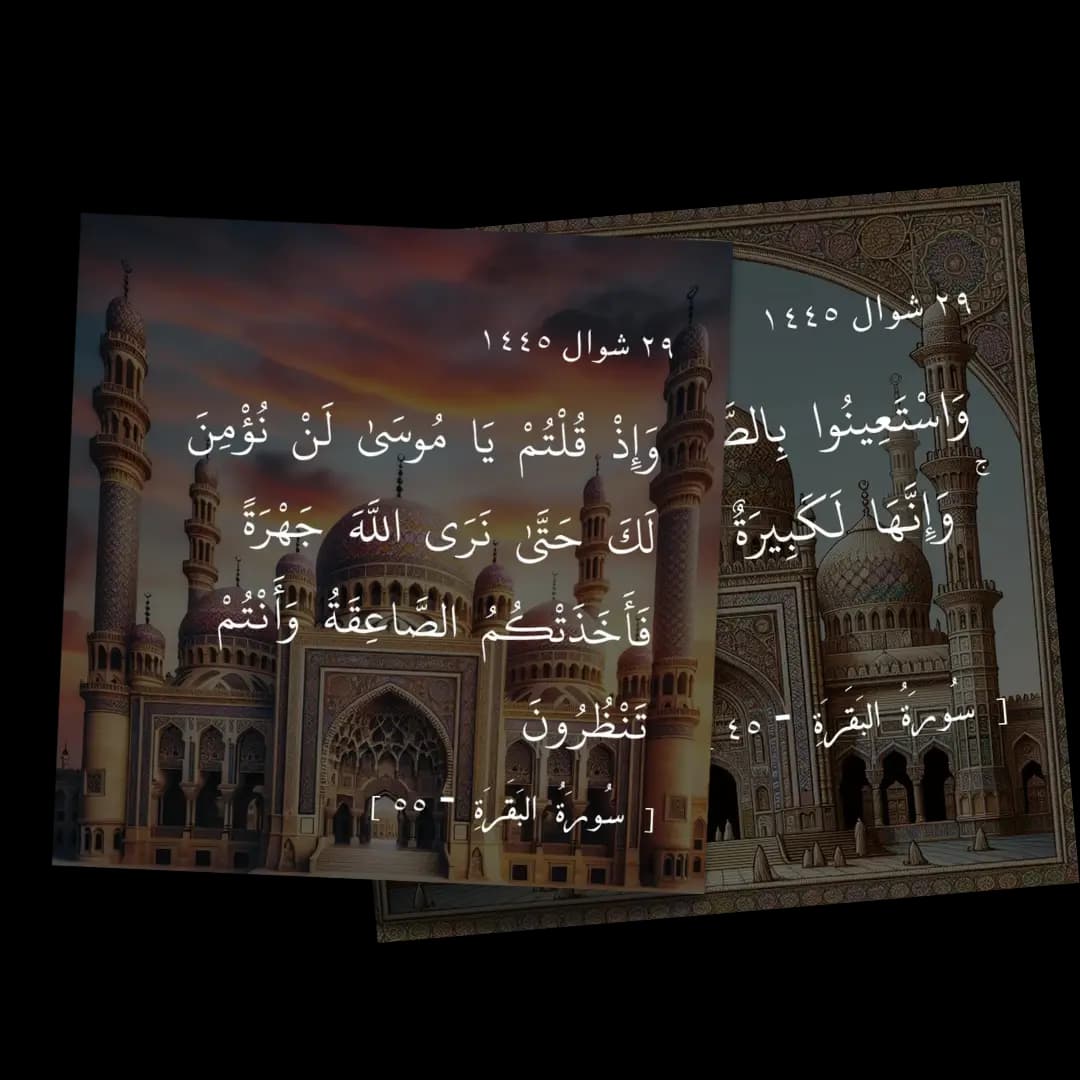 ٢٩ شوال ١٤٤٥
وَإِذْ قُلْتُمْ يَا مُوسَىٰ لَنْ نُؤْمِنَ
لَكَ حَتَّىٰ نَرَى اللَّهَ جَهْرَةً
فَأَخَذَتْكُمُ الصَّاعِقَةُ وَأَنْتُمْ
تَنْظُرُونَ
[ سُورَةُ البَقَرَةِ - ٥٥ ]
٢٩ شوال ١٤٤٥
وَاسْتَعِينُوا بِالصَّ
ۚ وَإِنَّهَا لَكَبِيرَةٌ
[ سُورَةُ البَقَرَةِ - ٤٥